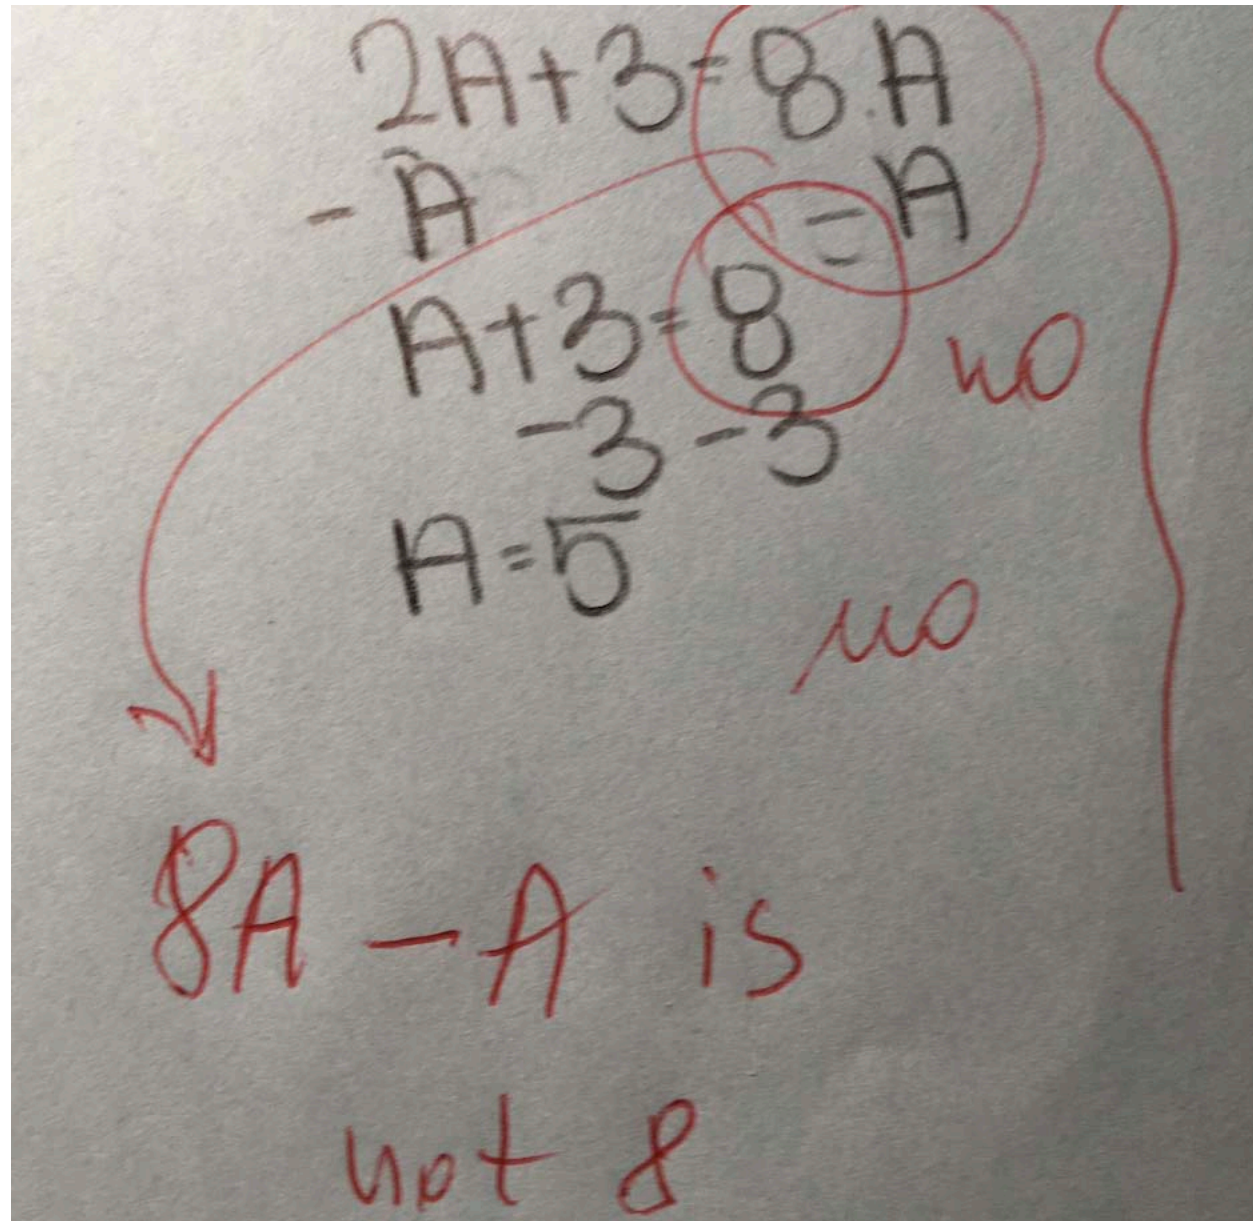 2A+3=8.A
-A =A
A+3=8
no
-3 -3
A=5
no
8A-A is
not 8